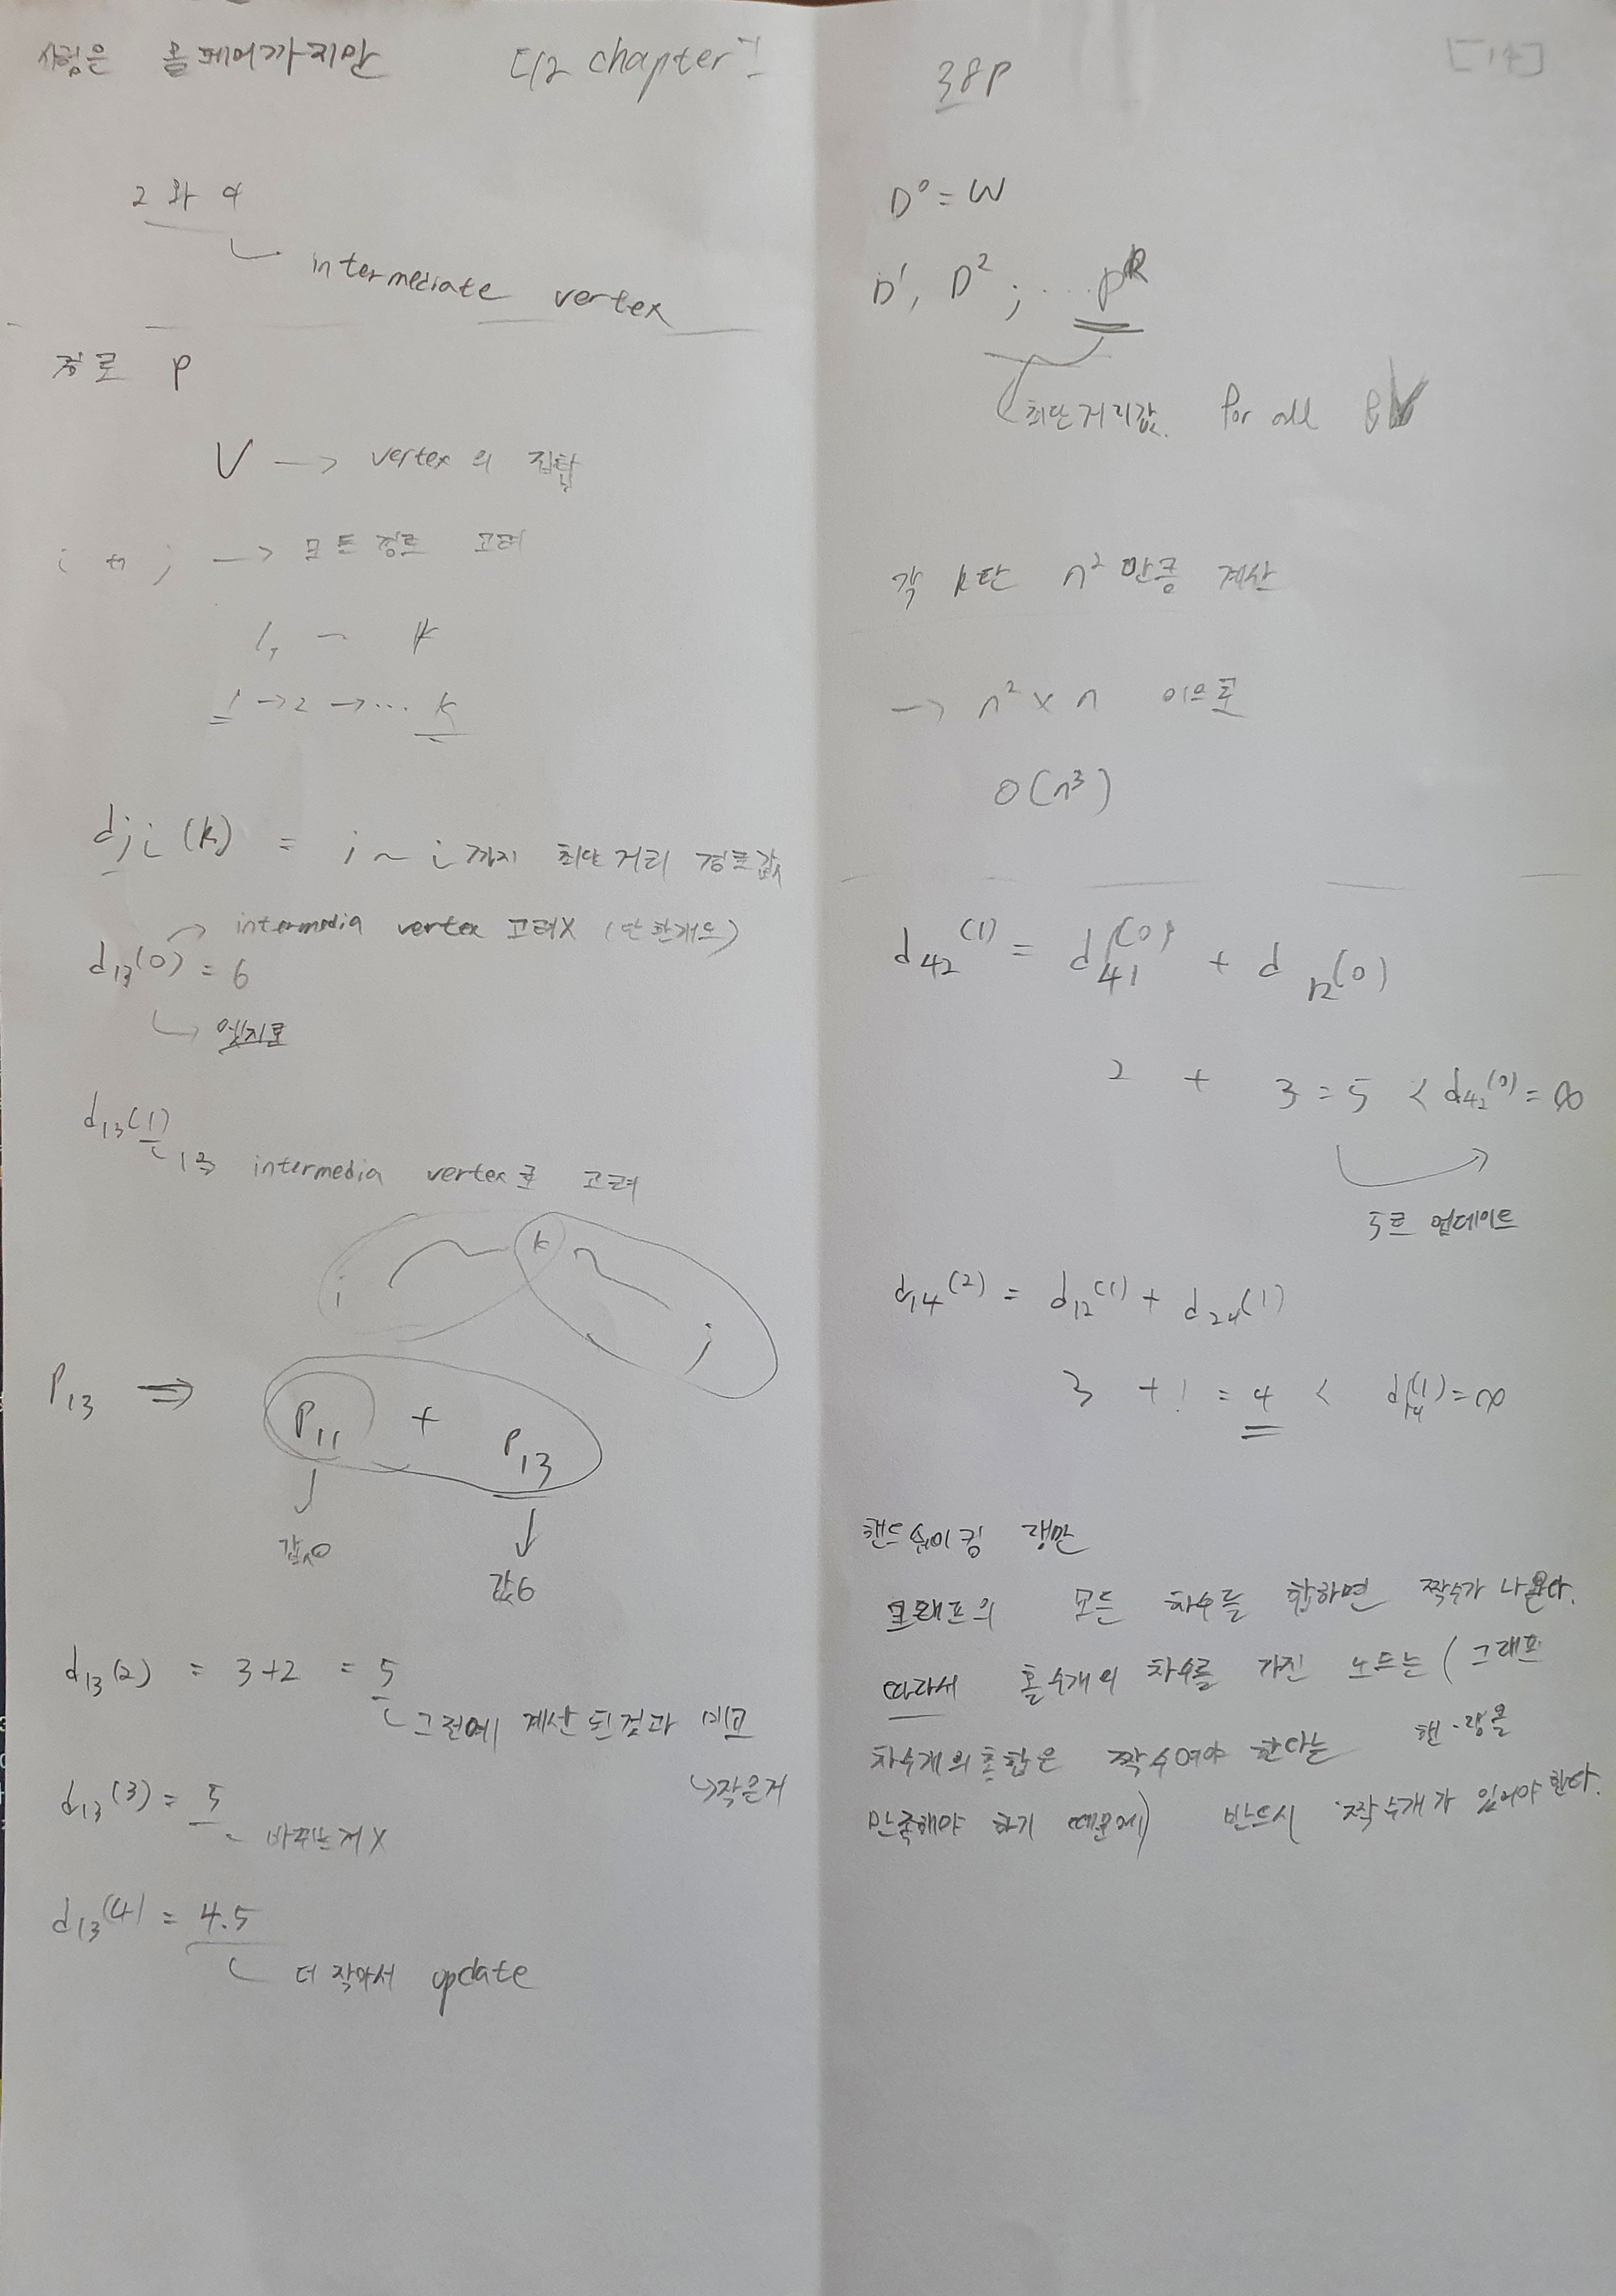 시험은 올페어까지만
[12 chapter]
2 와 4
intermediate vertex
경로 P
V → vertex의 집합
i to j → 모든 경로 고려
1, ~ k
1 → 2 → ... k
dji(k) = j ~ i 까지 최단거리 경로값
intermedia vertex 고려X (단 한개도)
d13(0) = 6
엣지로
d13(1)
1을 intermedia vertex로 고려
i k j
P13 ⇒ P11 + P13
값0
값6
d13(2) = 3+2 = 5
그전에 계산된것과 비교
↳작은거
d13(3) = 5
바뀌는거X
d13(4) = 4.5
더 작아서 update
[14]
38P
D⁰ = W
D¹, D², ... Dᵏ
최단거리값. for all
각 k당 n² 만큼 계산
→ n² x n 이므로
O(n³)
d42(1) = d41(0) + d12(0)
2 + 3 = 5 < d42(0) = ∞
5로 업데이트
d14(2) = d12(1) + d24(1)
3 + 1 = 4 < d14(1) = ∞
핸드쉐이킹 랭만
그래프의 모든 차수를 합하면 짝수가 나온다.
따라서 홀수개의 차수를 가진 노드는 (그래프
차수개의 총합은 짝수여야 한다는 핸·랭을
만족해야 하기 때문에) 반드시 짝수개가 있어야 한다.